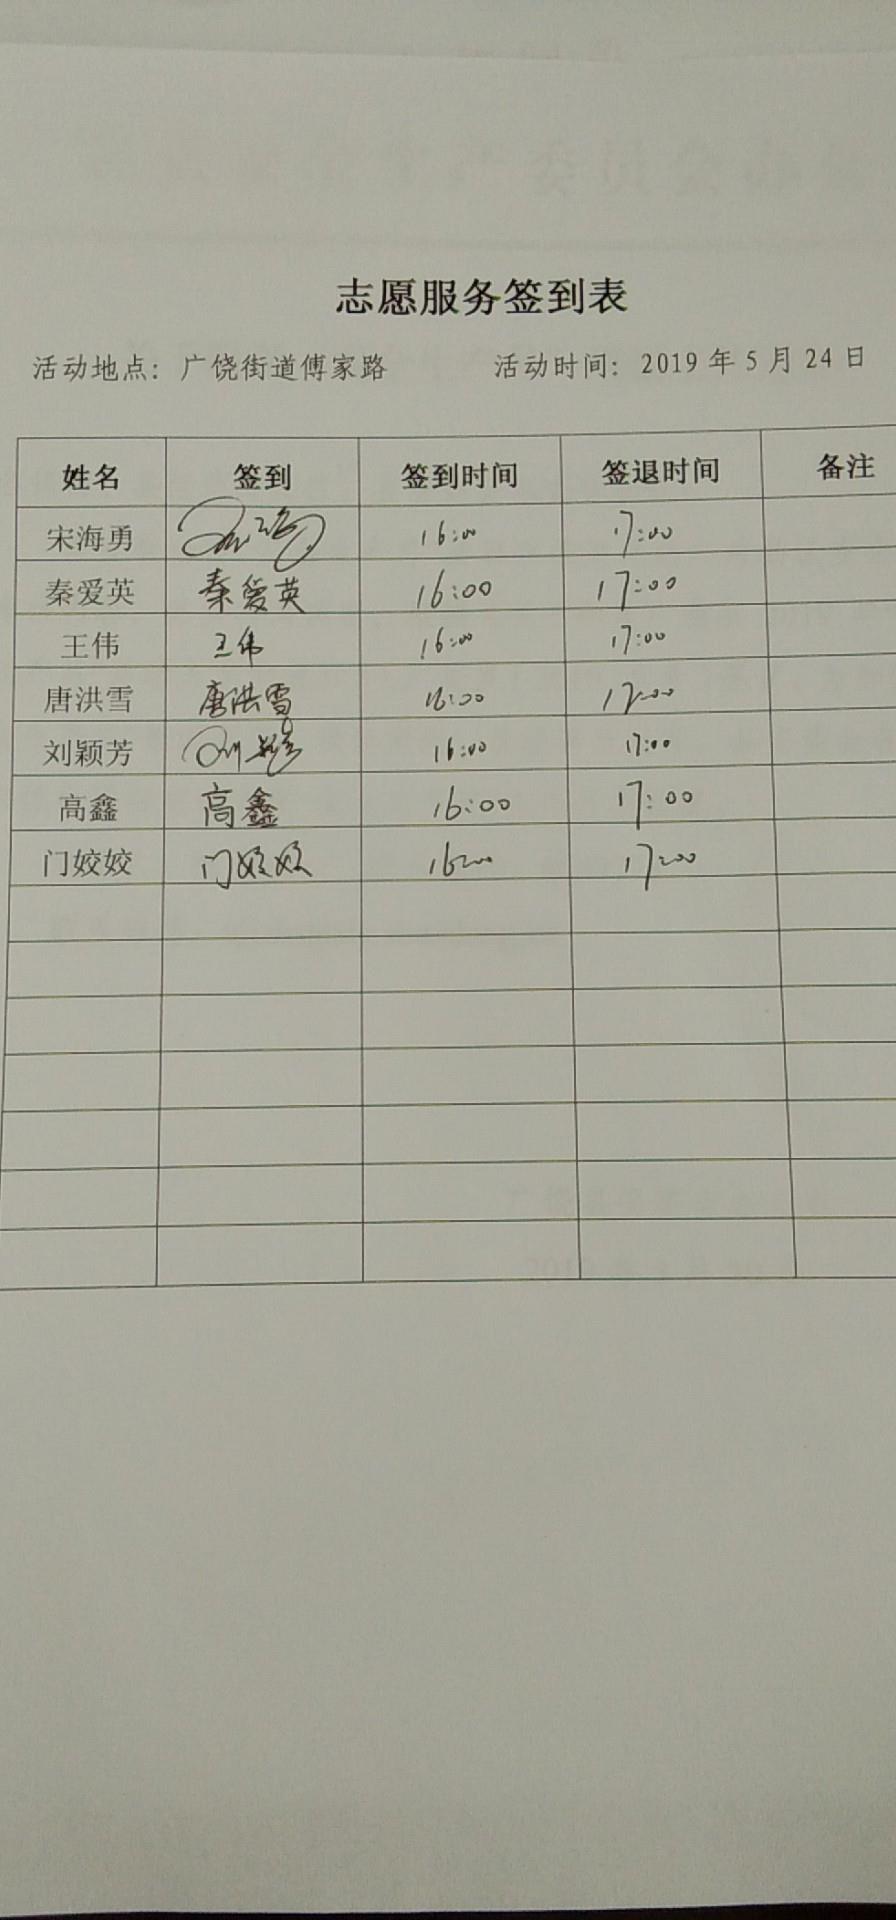 志愿服务签到表
活动地点：广饶街道傅家路 活动时间：2019年5月24日
姓名 签到 签到时间 签退时间 备注
宋海勇 16:00 17:00
秦爱英 秦爱英 16:00 17:00
王伟 王伟 16:00 17:00
唐洪雪 唐洪雪 16:00 17:00
刘颖芳 16:00 17:00
高鑫 高鑫 16:00 17:00
门姣姣 门姣姣 16:00 17:00